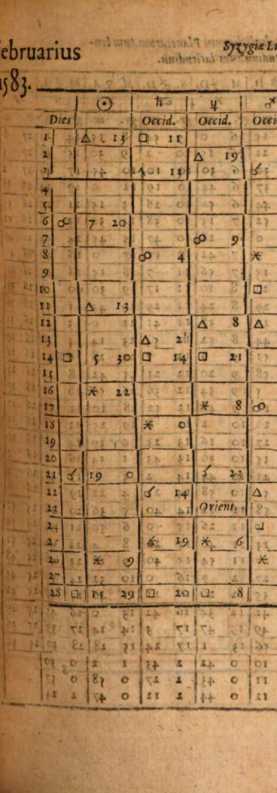 ebruarius Syzygiæ L
1583.
☉ ♄ ♃ ♂
Dies Occid. Occid. Occi
1 △ 13 □ 11
2 △ 19
3 11 ☌
4
5
6 ☍ 7 20
7 ☍ 9
8 ☍ 4 ⚹
9
10 □
11 △ 13
12 △ 8 △
13 △ 2
14 □ 5 30 □ 14 □ 21
15
16 ⚹ 22
17 ⚹ 8 ☍
18 ⚹ 0
19
20
21 ☌ 19 0 ☌ 23
22 ☌ 14 △
23 Orient.
24 □
25 ⚹ 19 ⚹ 6
26 ⚹ 9 ⚹
27
28 □ 14 29 □ 20 □ 8